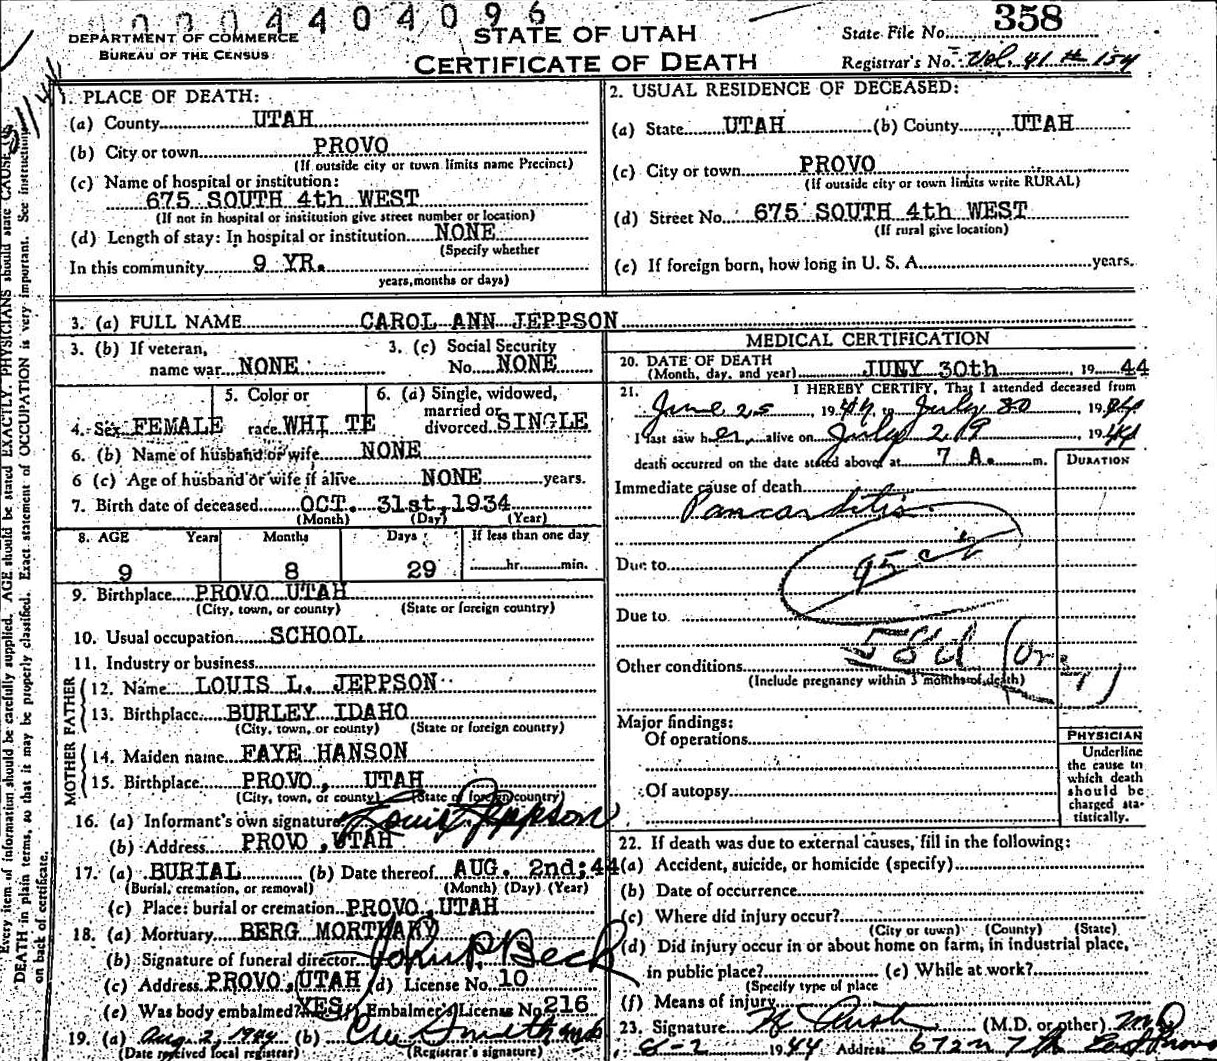 0004404096
DEPARTMENT OF COMMERCE
BUREAU OF THE CENSUS
STATE OF UTAH
CERTIFICATE OF DEATH
State File No. 358
Registrar's No. Vol. 41 # 154
1. PLACE OF DEATH:
(a) County UTAH
(b) City or town PROVO
(If outside city or town limits name Precinct)
(c) Name of hospital or institution:
675 SOUTH 4th WEST
(If not in hospital or institution give street number or location)
(d) Length of stay: In hospital or institution NONE
(Specify whether
In this community 9 YR.
years, months or days)
2. USUAL RESIDENCE OF DECEASED:
(a) State UTAH (b) County UTAH
(c) City or town PROVO
(If outside city or town limits write RURAL)
(d) Street No. 675 SOUTH 4th WEST
(If rural give location)
(e) If foreign born, how long in U. S. A. years.
3. (a) FULL NAME CAROL ANN JEPPSON
3. (b) If veteran, name war NONE
3. (c) Social Security No. NONE
4. Sex FEMALE
5. Color or race WHI TE
6. (a) Single, widowed, married or divorced SINGLE
6. (b) Name of husband or wife NONE
6 (c) Age of husband or wife if alive NONE years.
7. Birth date of deceased OCT. 31st, 1934
(Month) (Day) (Year)
8. AGE Years Months Days If less than one day
9 8 29 hr. min.
9. Birthplace PROVO UTAH
(City, town, or county) (State or foreign country)
10. Usual occupation SCHOOL
11. Industry or business
FATHER
12. Name LOUIS L. JEPPSON
13. Birthplace BURLEY IDAHO
(City, town, or county) (State or foreign country)
MOTHER
14. Maiden name FAYE HANSON
15. Birthplace PROVO, UTAH
(City, town, or county) (State or foreign country)
16. (a) Informant's own signature Louis Jeppson
(b) Address PROVO, UTAH
17. (a) BURIAL (b) Date thereof AUG. 2nd; 44
(Burial, cremation, or removal) (Month) (Day) (Year)
(c) Place: burial or cremation PROVO, UTAH
18. (a) Mortuary BERG MORTUARY
(b) Signature of funeral director
(c) Address PROVO, UTAH (d) License No. 10
(e) Was body embalmed? YES Embalmer's License No. 216
19. (a) Aug. 2, 1944 (b)
(Date received local registrar) (Registrar's signature)
MEDICAL CERTIFICATION
20. DATE OF DEATH
(Month, day, and year) JUNY 30th, 19 44
21. I HEREBY CERTIFY, That I attended deceased from
June 25, 1944, to July 30, 1944
I last saw her alive on July 29, 1944
death occurred on the date stated above at 7 A. m.
DURATION
Immediate cause of death
Pancarditis
95c
Due to
Due to
58d (or
Other conditions
(Include pregnancy within 3 months of death)
Major findings:
Of operations
Of autopsy
PHYSICIAN
Underline
the cause to
which death
should be
charged sta-
tistically.
22. If death was due to external causes, fill in the following:
(a) Accident, suicide, or homicide (specify)
(b) Date of occurrence
(c) Where did injury occur?
(City or town) (County) (State)
(d) Did injury occur in or about home on farm, in industrial place,
in public place? (e) While at work?
(Specify type of place
(f) Means of injury
23. Signature (M.D. or other) MD
8-2 1944 Address
Every item of information should be carefully supplied. AGE should be stated EXACTLY. PHYSICIANS should state CAUSE OF
DEATH in plain terms, so that it may be properly classified. Exact statement of OCCUPATION is very important. See instructions
on back of certificate.